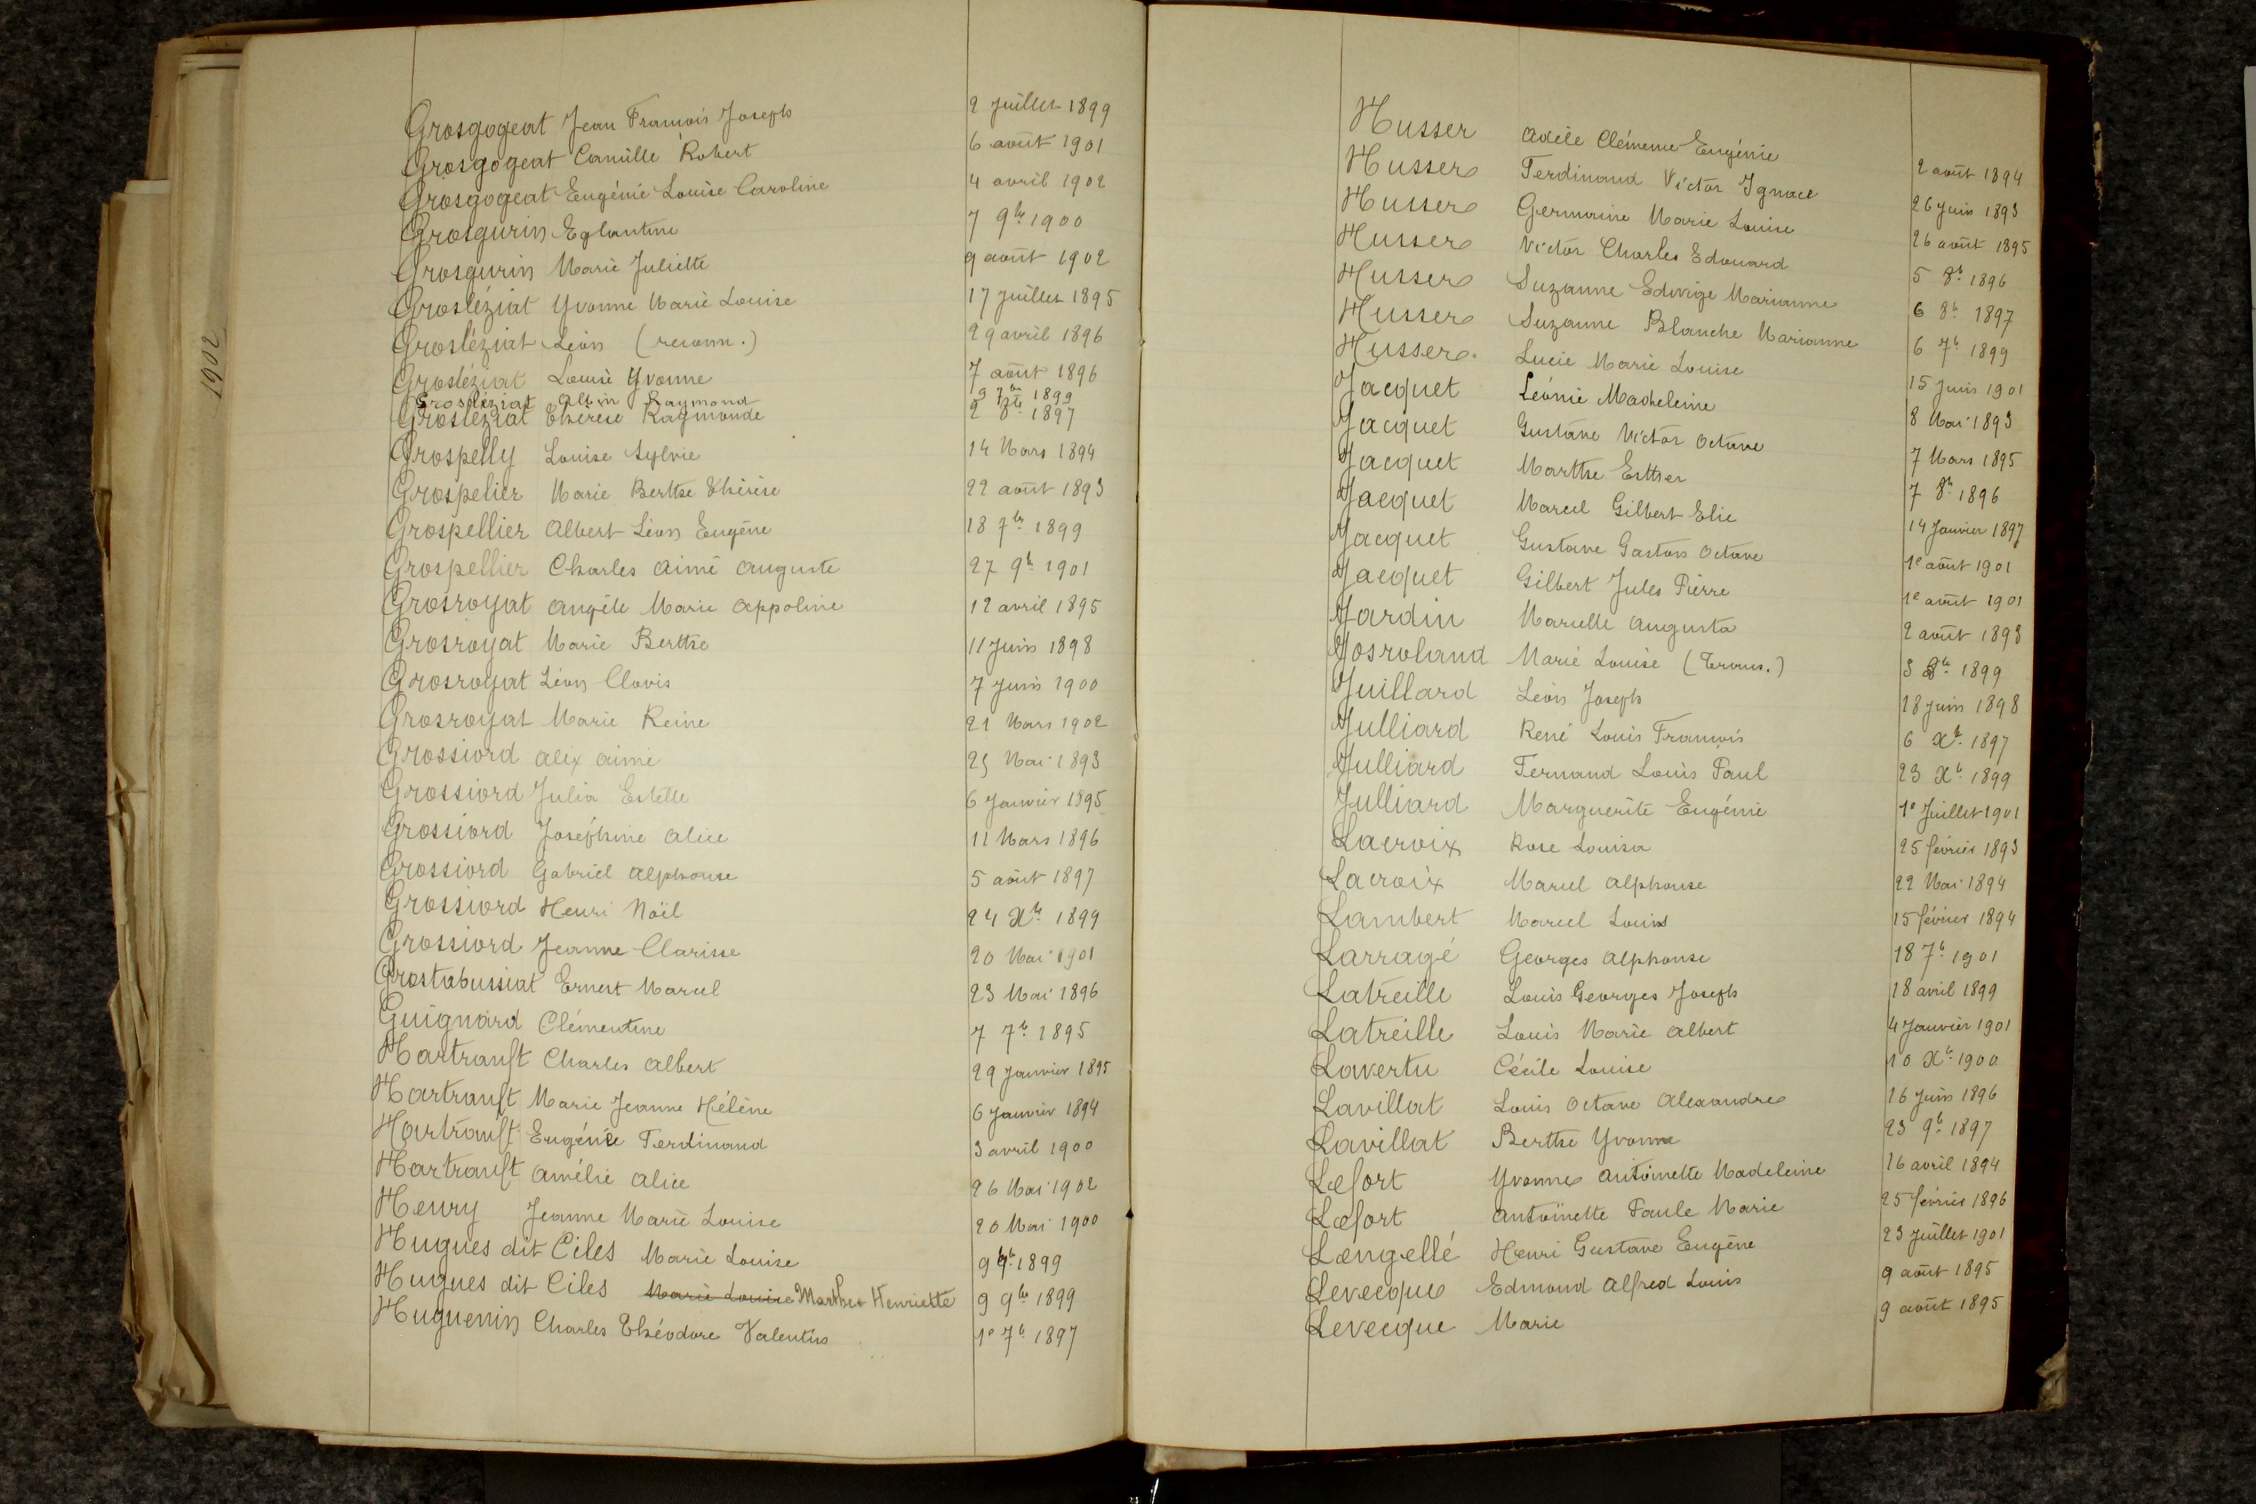 1902
Grosgogeat Jean François Joseph 2 Juillet 1899
Grosgogeat Camille Robert 6 août 1901
Grosgogeat Eugénie Louise Caroline 4 avril 1902
Grosgurin Eglantine 7 9bre 1900
Grosgurin Marie Juliette 9 août 1902
Grosléziat Yvonne Marie Louise 17 Juillet 1895
Grosléziat Léon (reconn.) 29 avril 1896
Grosléziat Louise Yvonne 7 août 1896
Grosléziat Albin Raymond 9 7bre 1899
Grosléziat Thérèse Raymonde 2 8bre 1897
Grospelly Louise Sylvie 14 Mars 1894
Grospelier Marie Berthe Thérèse 22 août 1893
Grospellier Albert Léon Eugène 18 7bre 1899
Grospellier Charles Aimé Auguste 27 9b. 1901
Grosroyat Angèle Marie Appoline 12 avril 1895
Grosroyat Marie Berthe 11 Juin 1898
Grosroyat Léon Clovis 7 Juin 1900
Grosroyat Marie Reine 21 Mars 1902
Grossiord Alix Aimé 25 Mai 1893
Grossiord Julia Estelle 6 Janvier 1895
Grossiord Joséphine Alice 11 Mars 1896
Grossiord Gabriel Alphonse 5 août 1897
Grossiord Henri Noël 24 Xbre 1899
Grossiord Jeanne Clarisse 20 Mai 1901
Grostabussiat Ernest Marcel 23 Mai 1896
Guignard Clémentine 7 7b. 1895
Hartranft Charles Albert 29 Janvier 1895
Hartranft Marie Jeanne Hélène 6 Janvier 1894
Hartranft Eugénie Ferdinand 3 avril 1900
Hartranft Amélie Alice 26 Mai 1902
Henry Jeanne Marie Louise 20 Mai 1900
Hugues dit Ciles Marie Louise 9 9b. 1899
Hugues dit Ciles Marie Louise Marthe Henriette 9 9bre 1899
Huguenin Charles Théodore Valentin 1e 7b. 1897
Husser Adèle Clémence Eugénie 2 août 1894
Husser Ferdinand Victor Ignace 26 Juin 1893
Husser Germaine Marie Louise 26 août 1895
Husser Victor Charles Edouard 5 8b. 1896
Husser Suzanne Edwige Marianne 6 8b. 1897
Husser Suzanne Blanche Marianne 6 7b. 1899
Husser Lucie Marie Louise 15 Juin 1901
Jacquet Léonie Madeleine 8 Mai 1893
Jacquet Gustave Victor Octave 7 Mars 1895
Jacquet Marthe Esther 7 8b. 1896
Jacquet Marcel Gilbert Elie 14 Janvier 1897
Jacquet Gustave Gaston Octave 1e août 1901
Jacquet Gilbert Jules Pierre 1e août 1901
Jardin Marielle Augusta 2 août 1893
Josroland Marie Louise (Trans.) 3 8bre 1899
Juillard Léon Joseph 18 Juin 1898
Julliard René Louis François 6 Xb. 1897
Julliard Fernand Louis Paul 23 Xb. 1899
Julliard Marguerite Eugénie 1e Juillet 1901
Lacroix Rose Louisa 25 février 1893
Lacroix Marcel Alphonse 22 Mai 1894
Lambert Marcel Louis 15 février 1894
Larragé Georges Alphonse 18 7b. 1901
Latreille Louis Georges Joseph 18 avril 1899
Latreille Louis Marie Albert 4 Janvier 1901
Lavertu Cécile Louise 10 Xb. 1900
Lavillat Louis Octave Alexandre 16 Juin 1896
Lavillat Berthe Yvonne 23 9b. 1897
Lefort Yvonne Antoinette Madeleine 16 avril 1894
Lefort Antoinette Paule Marie 25 février 1896
Længellé Henri Gustave Eugène 23 Juillet 1901
Levecque Edmond Alfred Louis 9 août 1895
Levecque Marie 9 août 1895